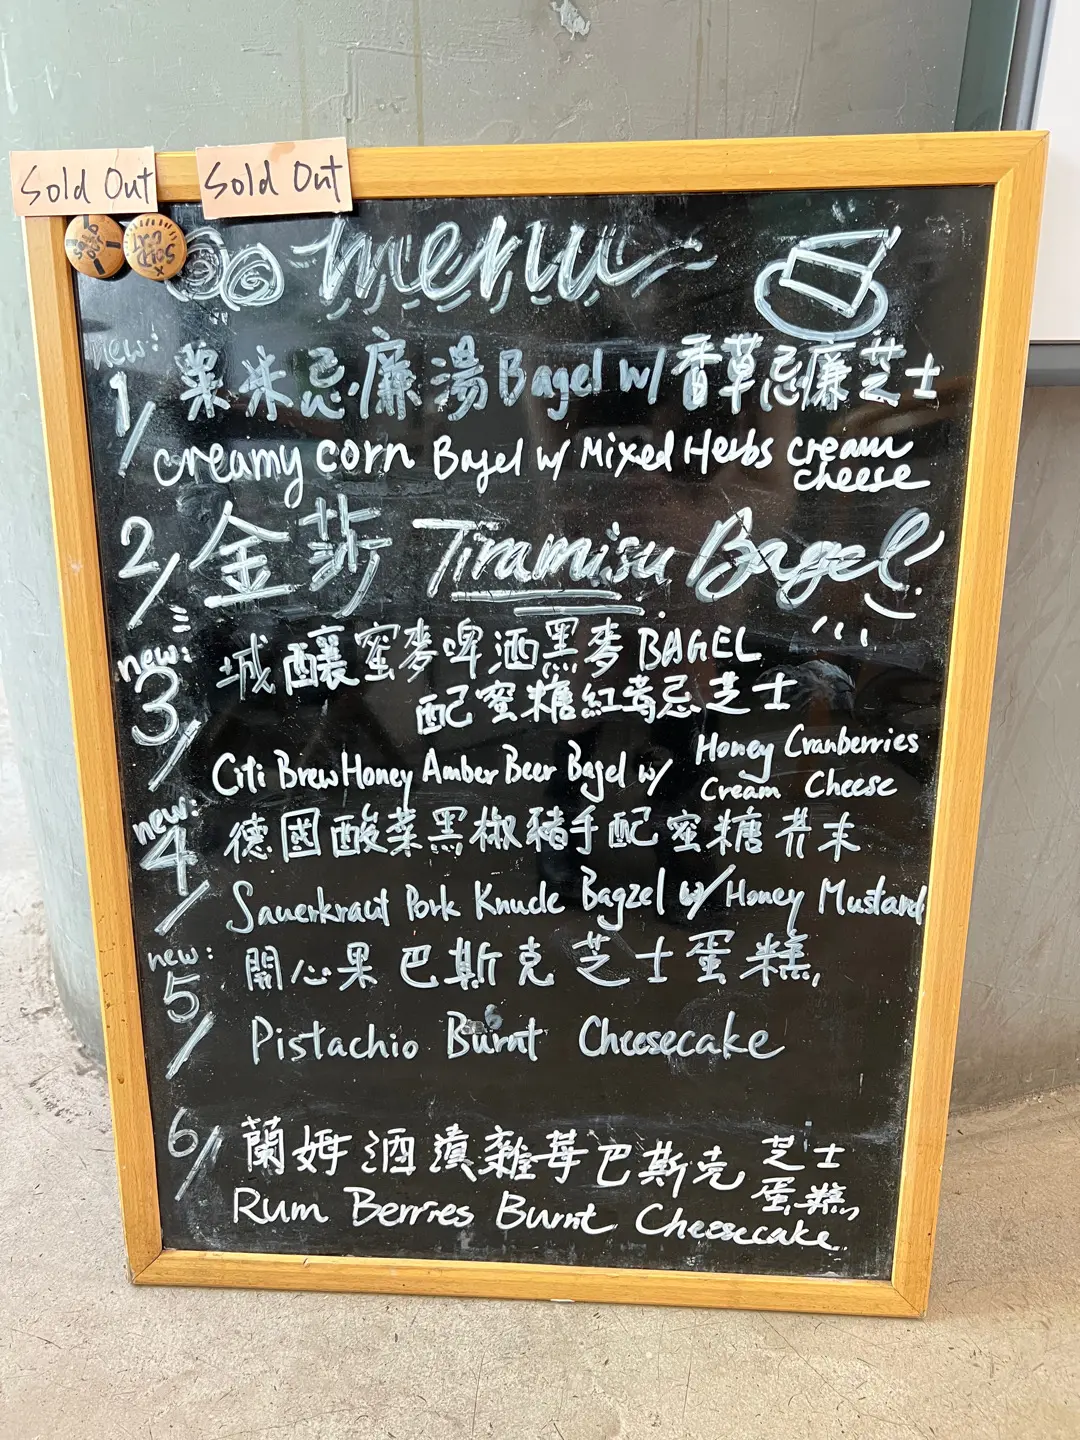 Sold Out
Sold Out
menu
new:
1/ 粟米忌廉湯 Bagel w/ 香草忌廉芝士
creamy corn Bagel w/ Mixed Herbs cream
cheese
2/ 金莎 Tiramisu Bagel
new:
3/ 城釀蜜麥啤酒黑麥 BAGEL
配蜜糖紅莓忌芝士
Citi Brew Honey Amber Beer Bagel w/ Honey Cranberries
Cream Cheese
new:
4/ 德國酸菜黑椒豬手配蜜糖芥末
Sauerkraut Pork Knucle Bagzel w/ Honey Mustard
new:
5/ 開心果巴斯克芝士蛋糕
Pistachio Burnt Cheesecake
6/ 蘭姆酒漬雜莓巴斯克芝士
蛋糕
Rum Berries Burnt Cheesecake